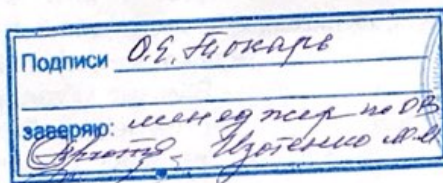 Подписи О.Е. Токарь
заверяю: менеджер по ОВ
Изотенко М.М